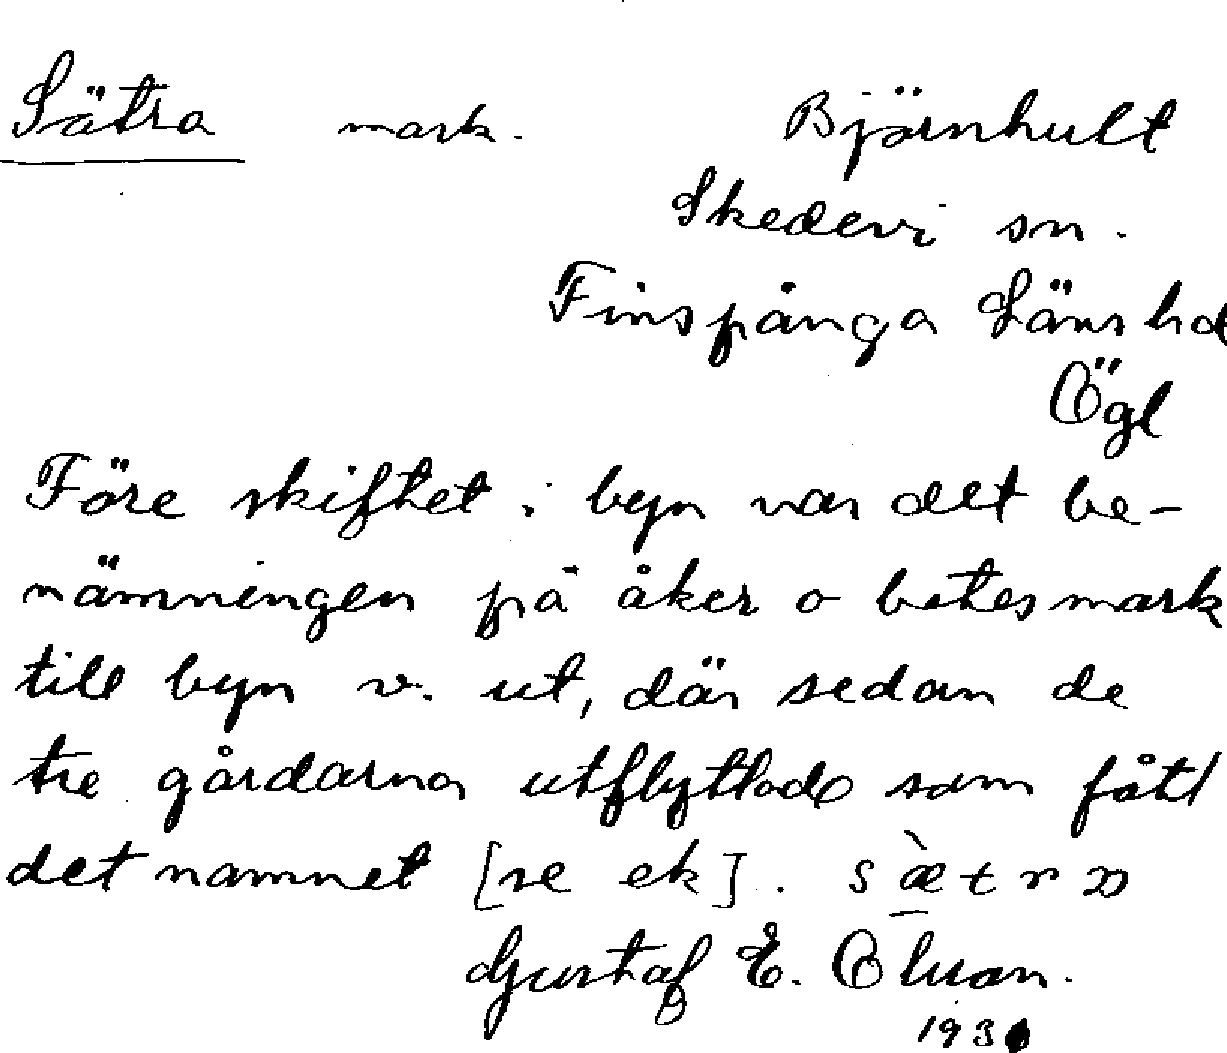 Sätra mark. Björnhult
Skedevi sn.
Finspånga Länshd
Ögl
Före skiftet i byn var det be-
nämningen på åker o betesmark
till byn v. ut, där sedan de
tre gårdarna utflyttade som fått
det namnet [se ek]. sæ̀trɒ
Gustaf E.